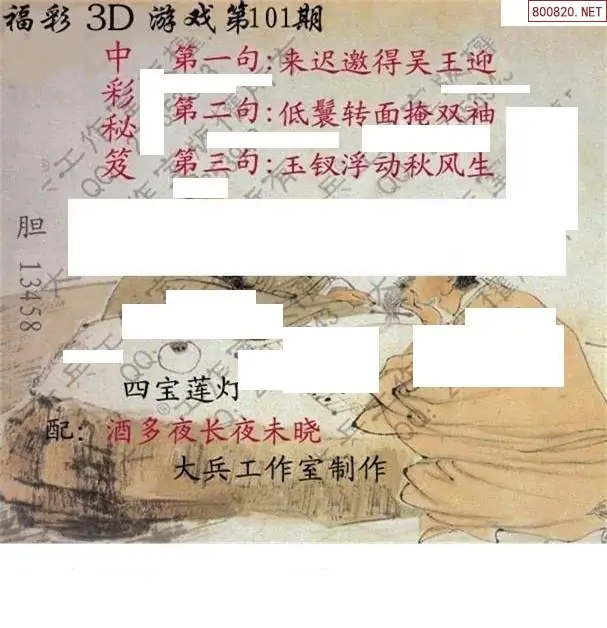 福彩3D游戏第101期
800820.NET
中彩秘笈
第一句:来迟邀得吴王迎
第二句:低鬟转面掩双袖
第三句:玉钗浮动秋风生
胆 13458
四宝莲灯
配:酒多夜长夜未晓
大兵工作室制作